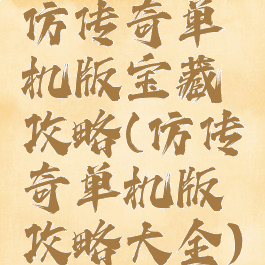 仿传奇单
机版宝藏
攻略(仿传
奇单机版
攻略大全)